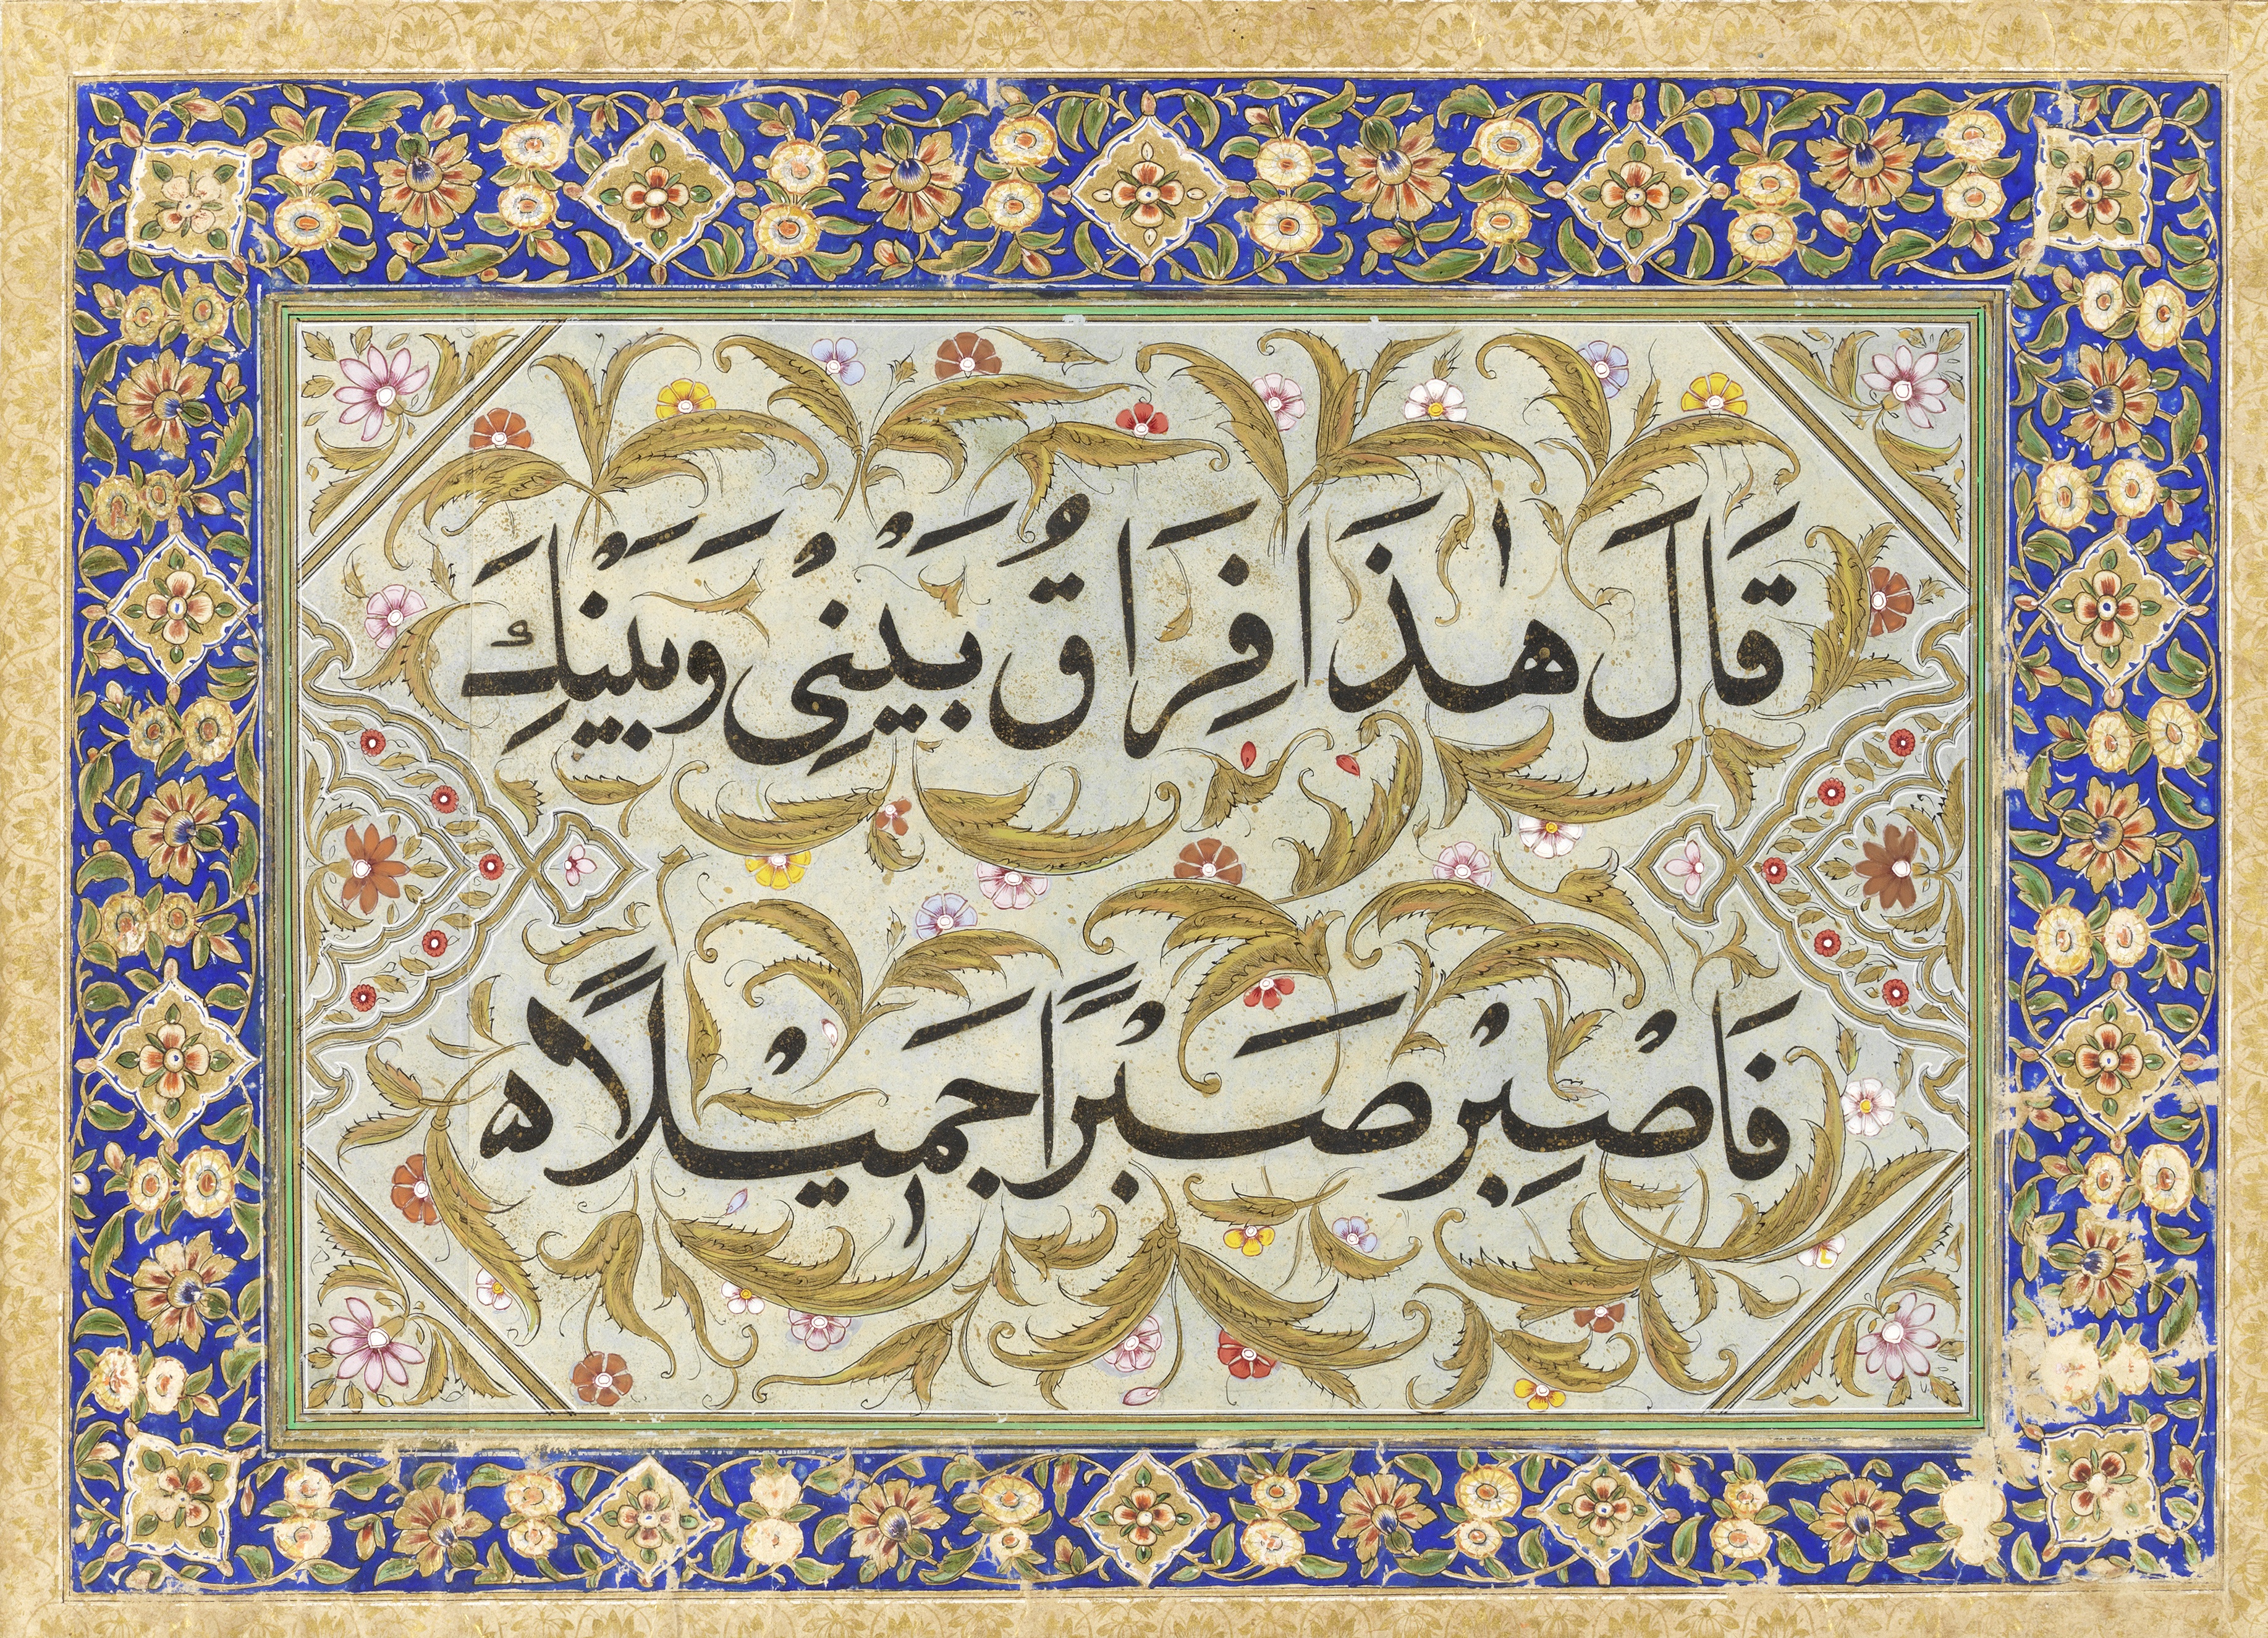 قَالَ هٰذَا فِرَاقُ بَيْنِيْ وَبَيْنِكَ
فَاصْبِرْ صَبْرًا جَمِيْلًاه